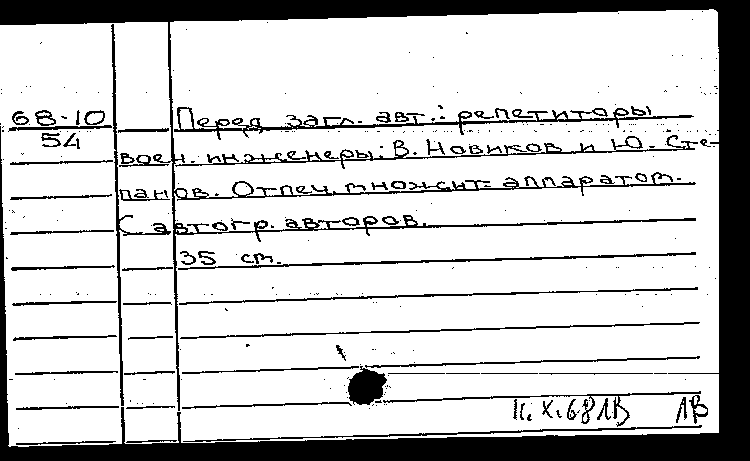 68-10
54
Перед загл. авт.: репетиторы
воен. инженеры: В. Новиков и Ю. Сте-
панов. Отпеч. множит= аппаратом.
С автогр. авторов.
35 см.
11.X.68 ЛВ ЛВ